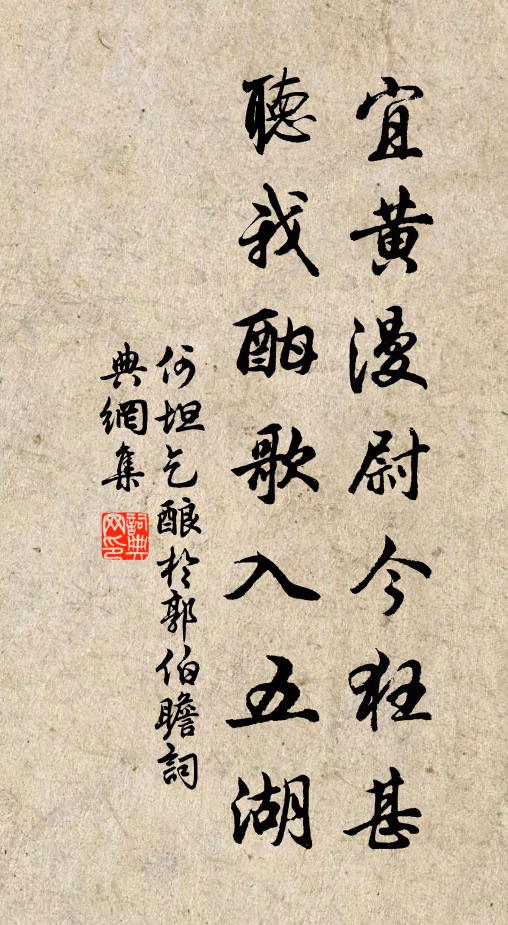 宜黄漫尉今狂甚
聴我酣歌入五湖
何坦乞酿於郭伯瞻詞
典網集
詞典网印